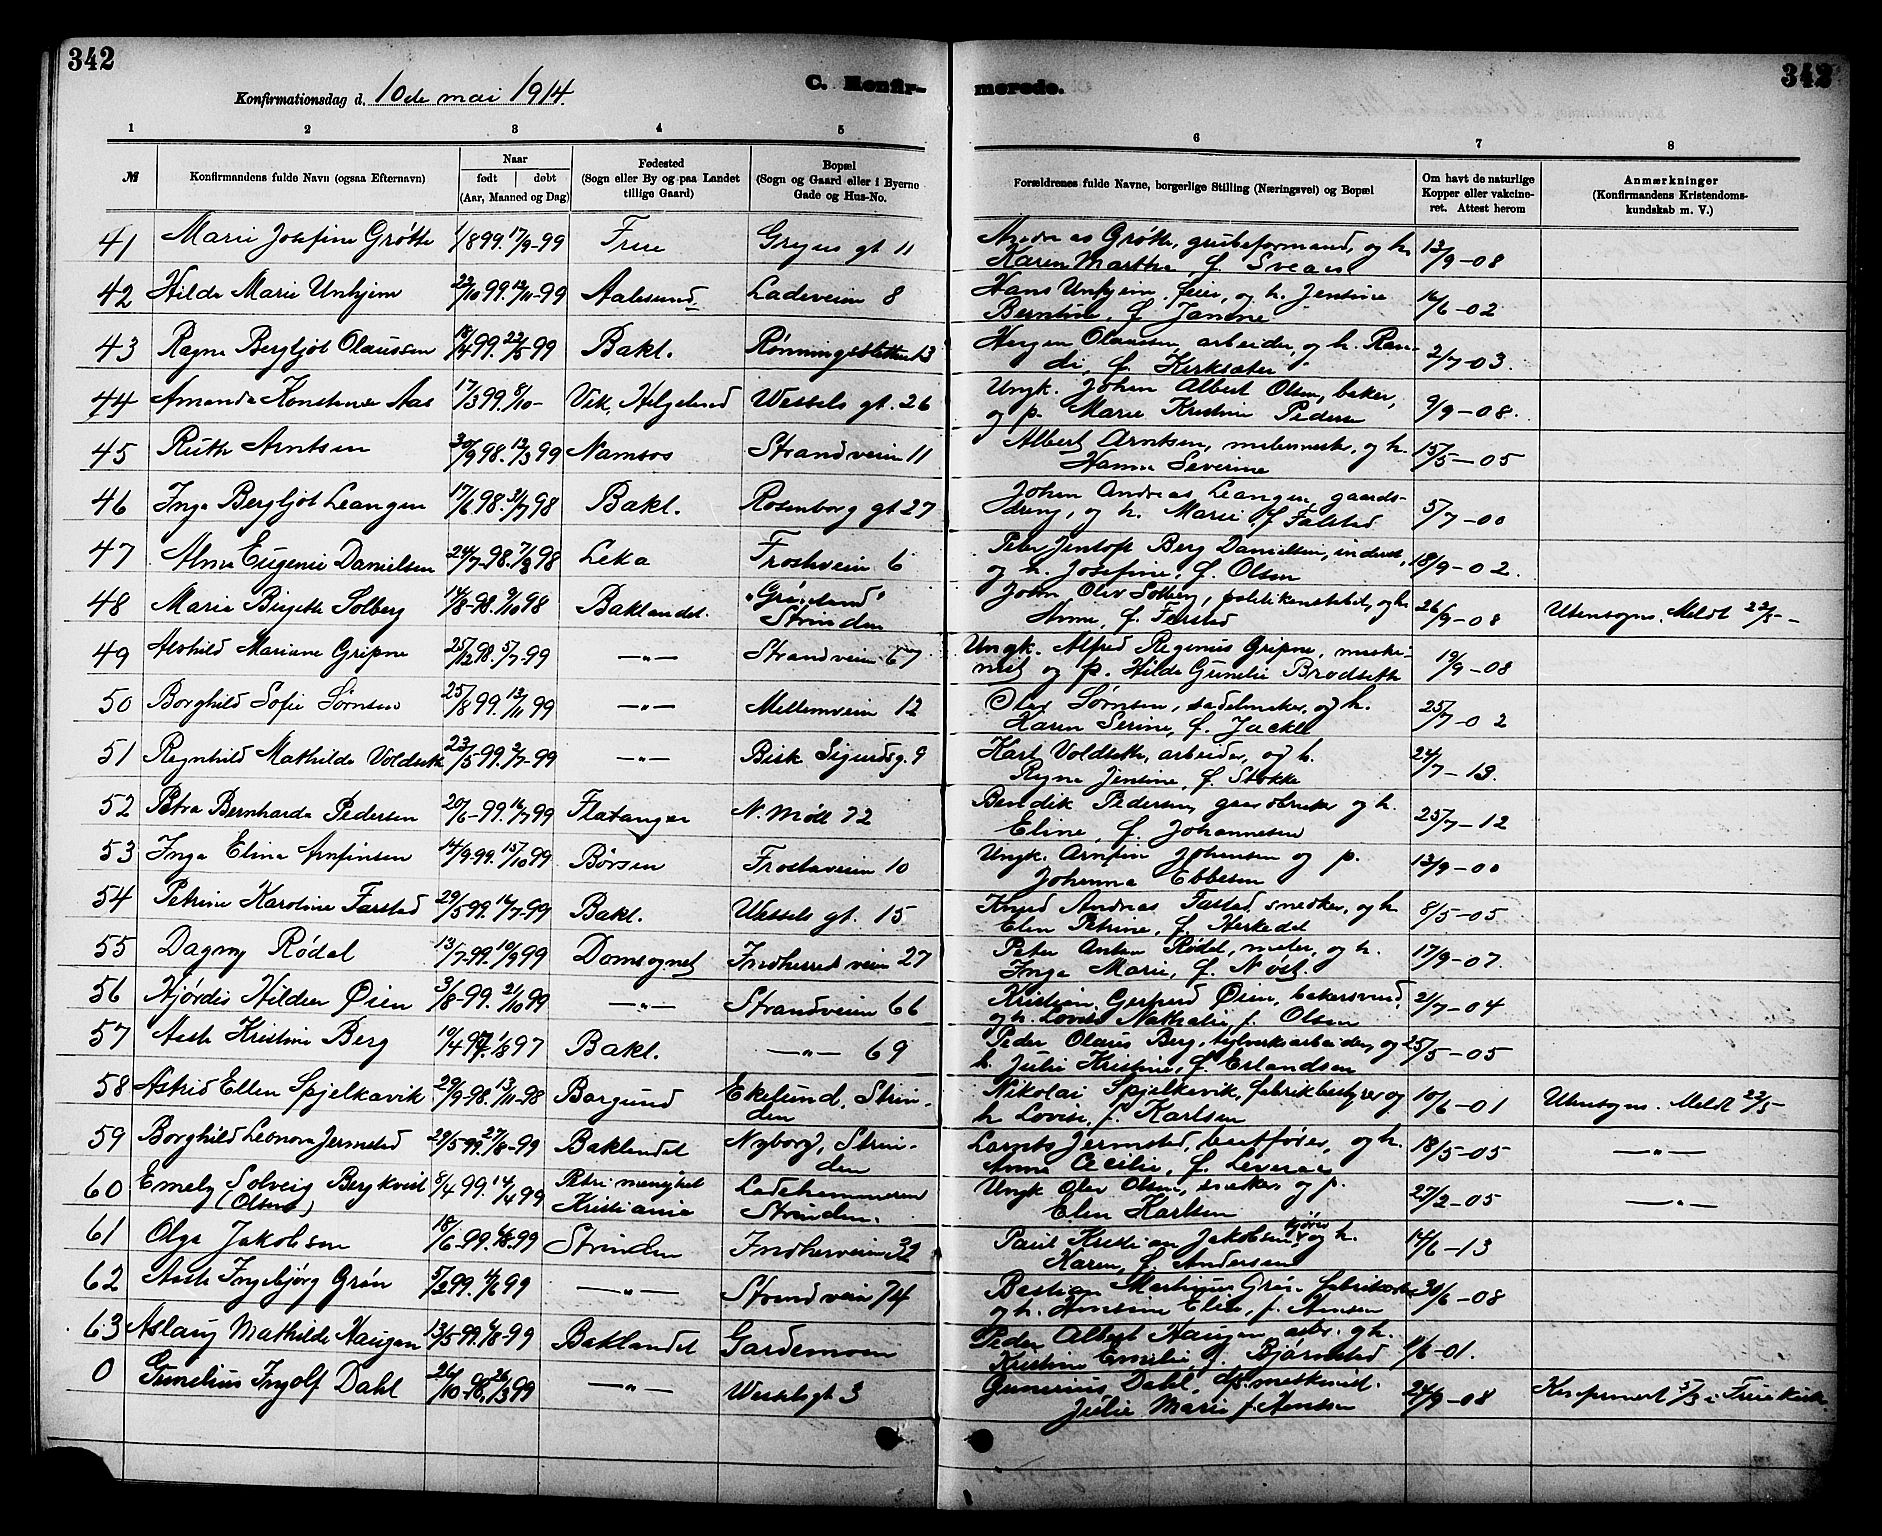 342
342
Konfirmationsdag d. 10de mai 1914.
C. Konfir-
merede.
1 2 3 4 5 6 7 8
№
Konfirmandens fulde Navn (ogsaa Efternavn)
Naar
født | døbt
(Aar, Maaned og Dag)
Fødested
(Sogn eller By og paa Landet
tillige Gaard)
Bopæl
(Sogn og Gaard eller i Byerne
Gade og Hus-No.
Forældrenes fulde Navne, borgerlige Stilling (Næringsvei) og Bopæl
Om havt de naturlige
Kopper eller vakcine-
ret. Attest herom
Anmærkninger
(Konfirmandens Kristendoms-
kundskab m. V.)
41 Marie Josefine Grøtte 1/8 99. 17/9-99 Gryus gt 11 Andreas Grøtte, grubeformand, og h. 13/9-08
Karen Martha, f. Sveaas
42 Hilda Marie Unhjem 22/10 99. 12/11-99 Aalesund Ladeveien 8 Hans Unhjem, feier, og h. Jensine 16/6-02
Berntine, f.
43 Ragna Bergljot Olaussen 18/4 99. 22/5 99 Bakl. Rønningsletten 13 Olaussen, arbeider, og h. Ran- 2/7-03.
di, f. Kirksæter
44 Amanda Konstanse Aas 17/3 99. 8/10- Vik, Helgeland Wessels gt. 26 Ungk. Johan Albert Olsen, baker, 9/9-08.
og p. Marie Kristine Pederse
45 Ruth Arntsen 30/9 98. 12/3 99 Namsos Strandveien 11 Albert Arntsen, og h. 15/5-05
Hanna Severine
46 Inga Bergljot Leangen 17/6 98. 31/7 98 Bakl. Rosenborg gt 27 Johan Andreas Leangen, gaards- 5/7-00
dreng, og h. Marie f. Falstad
47 Alma Eugenie Danielsen 24/7-98. 7/8 98 Leka Frostaveien 6 Peter Jentoft Berg Danielsen, inderst, 18/9-02.
og h. Josefine, f. Olsen
48 Marie Birgitte Solberg 14/8-98. 9/10 98 Baklandet. "Grønland" John Olav Solberg, politikonstabel, og h. 26/9-08 Utensogns. Meldt 22/5-
Strinden Anna, f. Farstad
49 Alvhild Mariane Gripne 25/12 98. 5/7-99 —"— Strandveien 67 Ungk. Alfred Regenius Gripne, maski- 19/9-08
nist og p. Hilda Gunelie Brodseth
50 Borghild Sofie Sørnsen 25/8 99. 13/11 99 —"— Mellemveien 12 Olav Sørnsen, sadelmaker, og h. 25/7-02
Karen Serine, f. Jackle
51 Ragnhild Mathilde Voldseth 23/5 99. 2/7-99 —"— Bisk Sigurdsg. 9 Karl Voldseth, arbeider, og h. 24/7-13.
Ragna Jensine, f. Stokke
52 Petra Bernharda Pedersen 20/6-99. 16/7 99 Flatanger N. Møll 72 Bendik Pedersen, gaardbruker og h. 25/7-12
Eline, f. Johannesen
53 Inga Elina Arnfinsen 14/9-99. 15/10 99 Børsen Frostaveien 10 Ungk. Arnfin Johansen og p. 13/9-00
Johanna Ebbesen
54 Petrine Karoline Farstad 29/5 99. 16/7-99 Bakl. Wessels gt. 15 Knud Andreas Farstad, snedker, og h. 8/5-05
Elen Petrine, f.
55 Dagny Rødal 13/7-99. 10/9 99 Domsognet Indherred veien 27 Peter Anton Rødal, maler, og h. 17/9-07.
Inga Marie, f. Nøst.
56 Hjørdis Hildur Øien 3/8-99. 2/10 99 —"— Strandveien 66 Kristian Gerhard Øien, bakersvend, 21/7-04
og h. Lovise Nathalie, f. Olsen
57 Aasta Kristine Berg 10/4 97. 1/8 97 Bakl. —"— 69 Peder Olaus Berg, teglverksarbeider, og 25/5-05
h. Julie Kristine, f. Erlandsen
58 Astrid Ellen Spjelkavik 29/9-98. 13/11-98 Borgund Ekelund, Strin- Nikolai Spjelkavik, fabrikbestyrer og 10/6-01 Utensogns. Meldt 22/5-
den h. Lovise, f. Karlsen
59 Borghild Leonora Jermstad 29/5-99. 27/8-99 Baklandet Nyborg, Strin- Jermstad, og h. 18/5-05 —"—
den Anna Cecilie, f. Leveraas
60 Emely Solveig Bergkvist 8/4 99. 14/4 99 Petri menighet Ladehammeren Ungk Olav Olsen, og p. 27/2-05 —"—
(Olsen) Kristiania Strinden. Elen Karlsen
61 Olga Jakobsen 18/6-99. 99 Strinden Indherveien 32 Paul Kristian Jakobsen, kjører og h. 14/6-13
Karen, f. Andersen
62 Aasta Ingebjørg Grøn 5/2 99. 4/6 99 —"— Strandveien 74 Bastian Martinus Grøn. 30/6-08
og h. Elise, f.
63 Aslaug Mathilde Haugan 13/5 99. 6/8-99 Baklandet Gardemoen Peder Albert Haugan, arb. og h. 1/6-01.
Kristine Emilie, f. Bjørnstad
0 Gunelius Ingolf Dahl 26/10-98. 26/3 99 —"— Wesselsgt 3 Gunerius Dahl, 24/9-08 3/3 i Frue kirke.
Julie Marie f. Arntsen